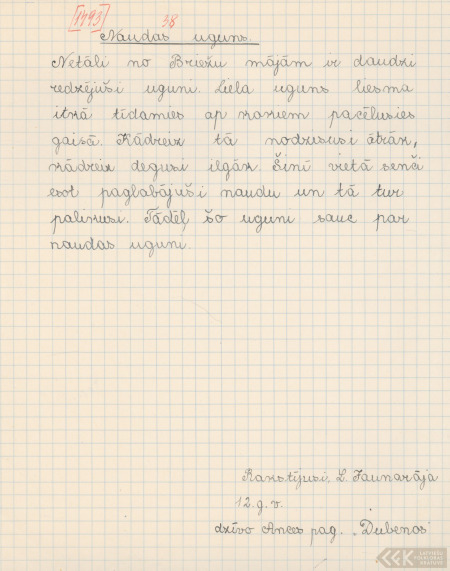 [1793] 38
Naudas uguns.
Netāli no Briežu mājām ir daudzi
redzējuši uguni. Liela uguns liesma
itkā tīdamies ap kokiem pacēlusies
gaisā. Kādreiz tā nodzisusi ātrāk,
kādreiz degusi ilgāk. Šinī vietā senči
esot paglabājuši naudu un tā tur
palikusi. Tādēļ šo uguni sauc par
naudas uguni.
Rakstījusi, L. Jaunarāja
12.g.v.
dzīvo Ances pag. „Dubenos"
LATVIEŠU
FOLKLORAS
KRĀTUVE